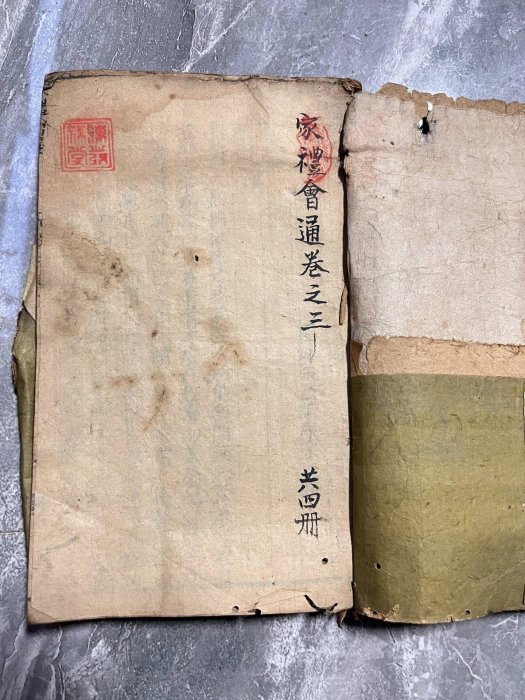 家禮會通卷之三
共四冊